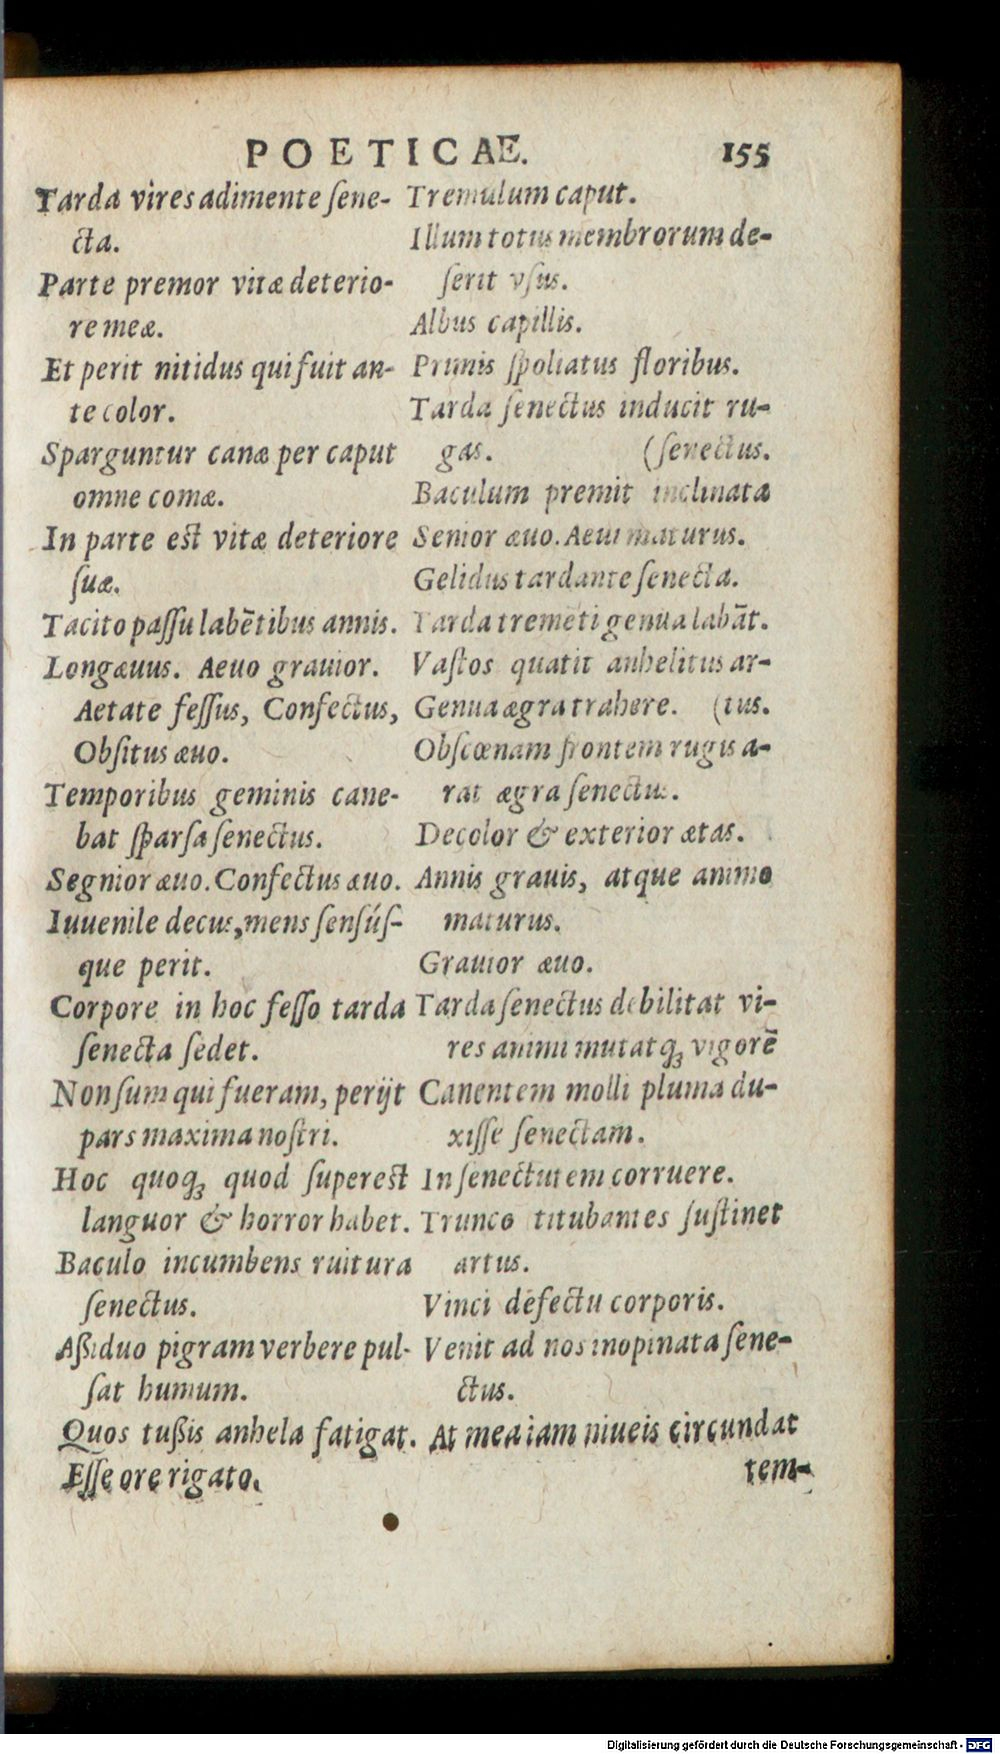 POETICAE. 155
Tarda vires adimente sene-
cta.
Parte premor vitæ deterio-
re meæ.
Et perit nitidus qui fuit an-
te color.
Sparguntur canæ per caput
omne comæ.
In parte est vitæ deteriore
suæ.
Tacito passu labētibus annis.
Longæuus. Aeuo grauior.
Aetate fessus, Confectus,
Obsitus æuo.
Temporibus geminis cane-
bat sparsa senectus.
Segnior æuo. Confectus æuo.
Iuuenile decus, mens sensús-
que perit.
Corpore in hoc fesso tarda
senecta sedet.
Non sum qui fueram, perijt
pars maxima nostri.
Hoc quoqꝫ quod superest
languor & horror habet.
Baculo incumbens ruitura
senectus.
Aßiduo pigram verbere pul-
sat humum.
Quos tußis anhela fatigat.
Esse ore rigato.
Tremulum caput.
Illum totus membrorum de-
serit vsus.
Albus capillis.
Primis spoliatus floribus.
Tarda senectus inducit ru-
gas. (senectus.
Baculum premit inclinata
Senior æuo. Aeui maturus.
Gelidus tardante senecta.
Tarda tremēti genua labāt.
Vastos quatit anhelitus ar-
Genua ægra trahere. (tus.
Obscœnam frontem rugis a-
rat ægra senectus.
Decolor & exterior ætas.
Annis grauis, atque animo
maturus.
Grauior æuo.
Tarda senectus debilitat vi-
res animi mutatqꝫ vigorē
Canentem molli pluma du-
xisse senectam.
In senectutem corruere.
Trunco titubantes sustinet
artus.
Vinci defectu corporis.
Venit ad nos inopinata sene-
ctus.
At mea iam niueis circundat
tem-
Digitalisierung gefördert durch die Deutsche Forschungsgemeinschaft - DFG